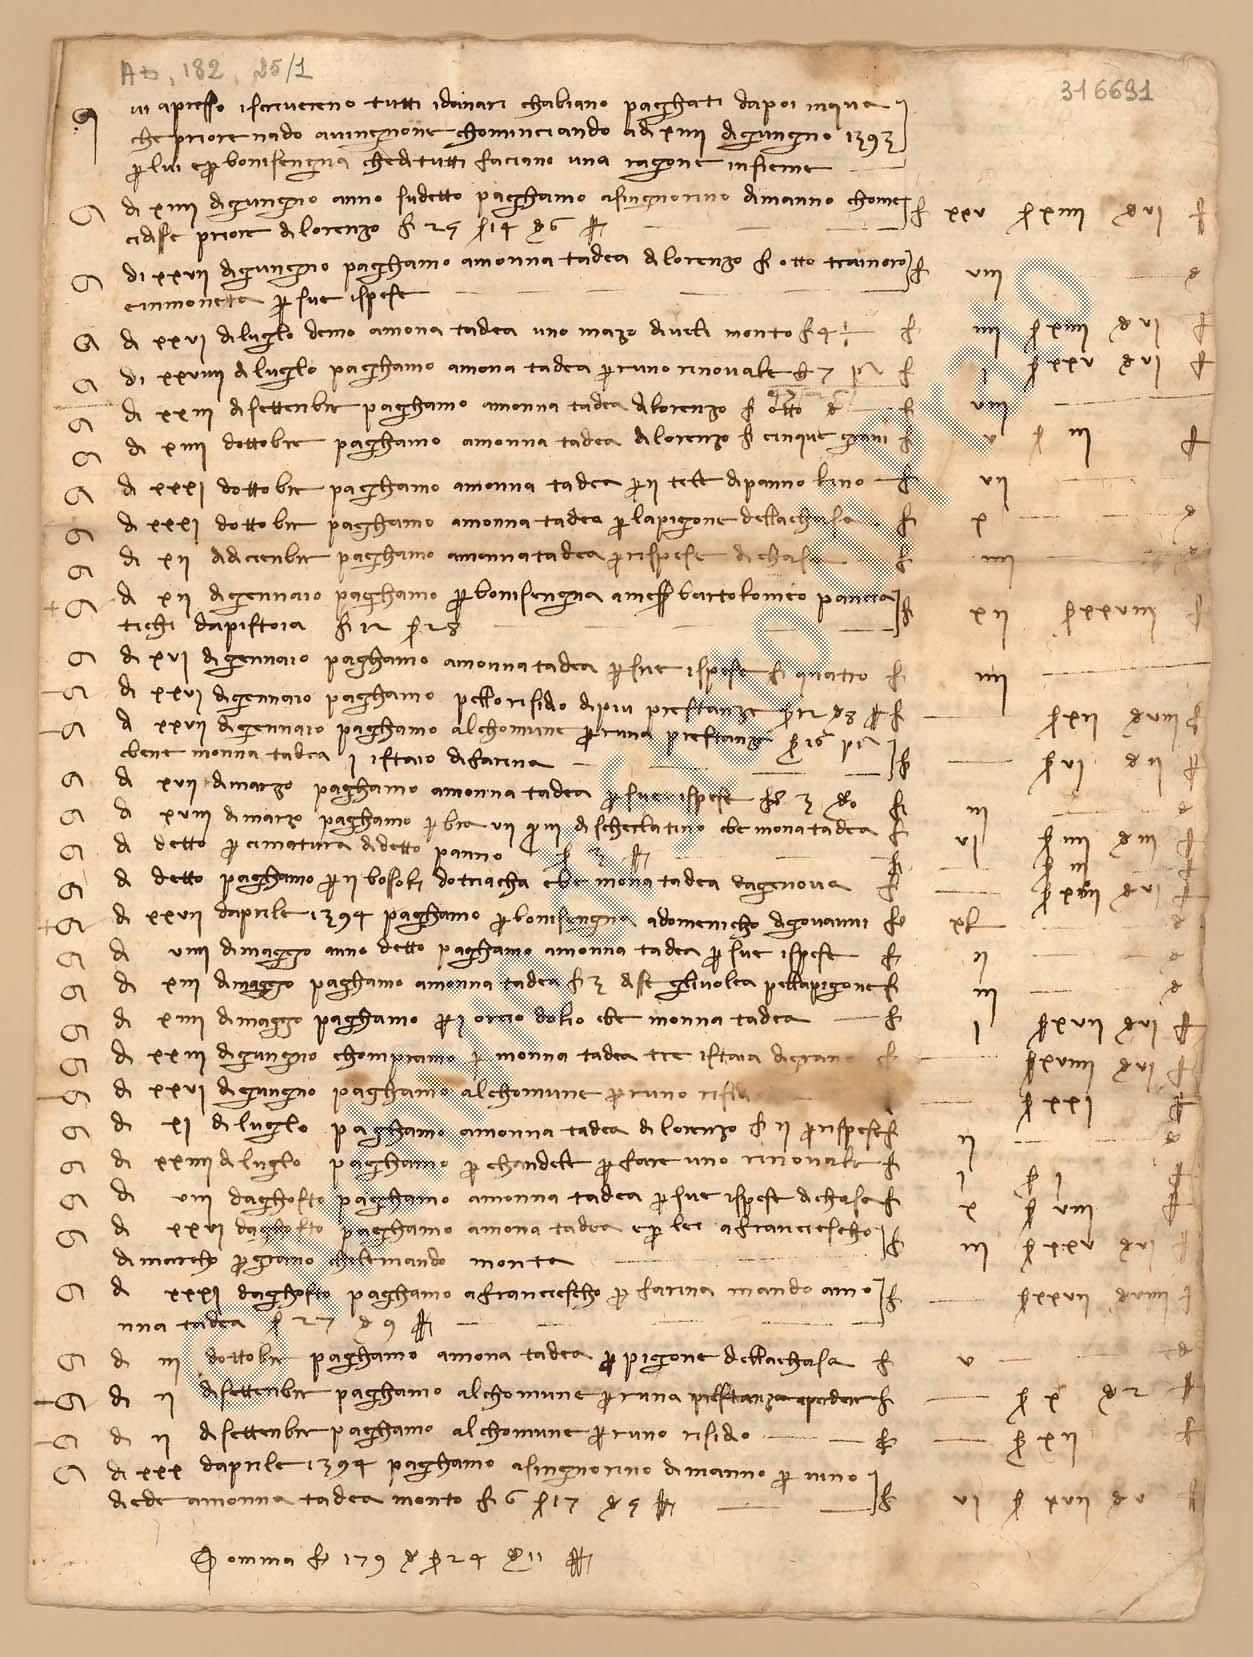 Ab, 182, 25/1
316691
qui apresso iscrivereno tutti i danari ch abiano paghati da poi in qua
che priore n ando a vingnione chominciando a dì xiiii di gungno 1393
per lui e per bonisengna che di tutti faciano una ragone insieme
dì xiiii di gungno anno sudetto paghamo a singnorino di manno chome f xxv s xiiii d vi
ci disse priore di lorenzo f 25 s 14 d 6
dì xxvii di gungno paghamo a monna tadea di lorenzo f otto tra in oro f viii d
e in moneta per sue ispese
dì xxvi di luglo demo a mona tadea uno mazo di veli monto f 4 f iiii s xiiii d vi
dì xxviiii di luglo paghamo a mona tadea per uno rinovale f i s xxv d vi
dì xxiii di settenbre paghamo a monna tadea di lorenzo f otto f viii
dì xiiii d ottobre paghamo a monna tadea di lorenzo f cinque f v s iii
dì xxxi d ottobre paghamo a monna tadea per ii tele di panno lino f vii
dì xxxi d ottobre paghamo a monna tadea per la pigone della chasa f x d
dì xii di dicienbre paghamo a monna tadea per ispese di chasa f iiii d
dì xii di gennaio paghamo per bonisengna a mess bartolomeo pancia f xii s xxviii
tichi da pistoia f 12 s 28
dì xvi di gennaio paghamo a monna tadea per sue ispese f quatro f iiii
dì xxvi di gennaio paghamo pello risido di piu prestanze s 12 d 8 f s xii d viii
dì xxvii di gennaio paghamo al chomune per una prestanza s f s vi d ii
ebene monna tadea i istaio di farina
dì xvii di marzo paghamo a monna tadea per sue ispese f 3 f iii d
dì xviii di marzo paghamo per bra vii di ischerlatino ebe mona tadea f vi s iiii d iii
dì detto per cimatura di detto panno s 3 s iii
dì detto paghamo per ii bossoli d otriacha ebe mona tadea da genova f d vi
dì xxvii d aprile 1394 paghamo per bonisengna a domenicho di govanni f xl d
dì viiii di maggo anno detto paghamo a monna tadea per sue ispese f ii d
dì xiii di maggo paghamo a monna tadea f 3 disse gli volea pella pigone f iii d
dì xiiii di maggo paghamo per i orcio d olio ebe monna tadea f i s xvii d vi
dì xxiii di gungno chompramo per monna tadea tre istaia di grano f s xviiii d vi
dì xxvi di gungno paghamo al chomune per uno s xxi
dì xi di luglo paghamo a monna tadea di lorenzo f ii per ispese f ii d
dì xxiiii di luglo paghamo per chandele per fare uno rinovale f i s i
dì viii d aghosto paghamo a monna tadea per sue ispese di chasa f x s viii
dì xxvi d aghosto paghamo a mona tadea e per lei a franciescho f iii s xxv d vi
di marcho per grano che le mando monta
dì xxxi d aghosto paghamo a franciescho per farina mando a mo f s xxvii d viiii
nna tadea s 27 d 9
dì iii d ottobre paghamo a mona tadea per pigone della chasa f v d
dì ii di settenbre paghamo al chomune per una prestanza f s x d 2
dì ii di settenbre paghamo al chomune per uno risido f s xii
dì xxx d aprile 1394 paghamo a singnorino di manno per vino
diede a monna tadea monto f 6 s 17 d 5 f vi s xvii d v
Somma f 179 s 24 d 11